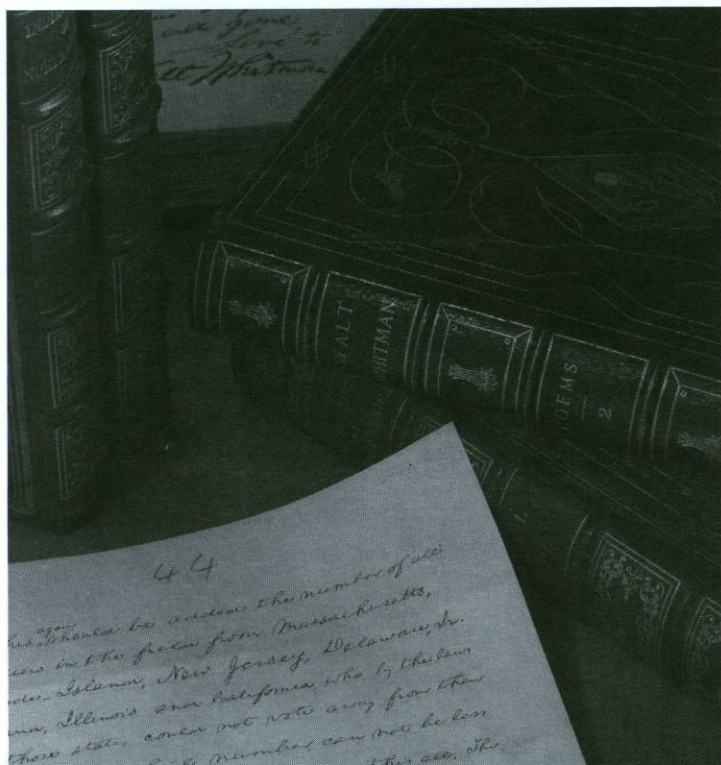 all gone,
love to
Walt Whitman
WALT
WHITMAN
POEMS
2
1.
44
again
this should be added the number of all
in the field from Massachusetts,
Rhode-Island, New Jersey, Delaware, In
iana, Illinois and California, who, by the laws
those states, could not vote away from their
number can not be less
this all. The